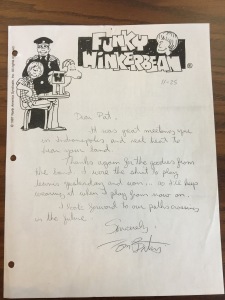 FUNKY
WINKERBEAN
®
11-25
Dear Pat,
It was great meeting you
in Indianapolis and neat to
hear your band.
Thanks again for the goodies from
the band. I wore the shirt to play
tennis yesterday and won... so I'll keep
wearing it when I play from now on.
I look forward to our paths crossing
in the future.
Sincerely,
Tom Batiuk